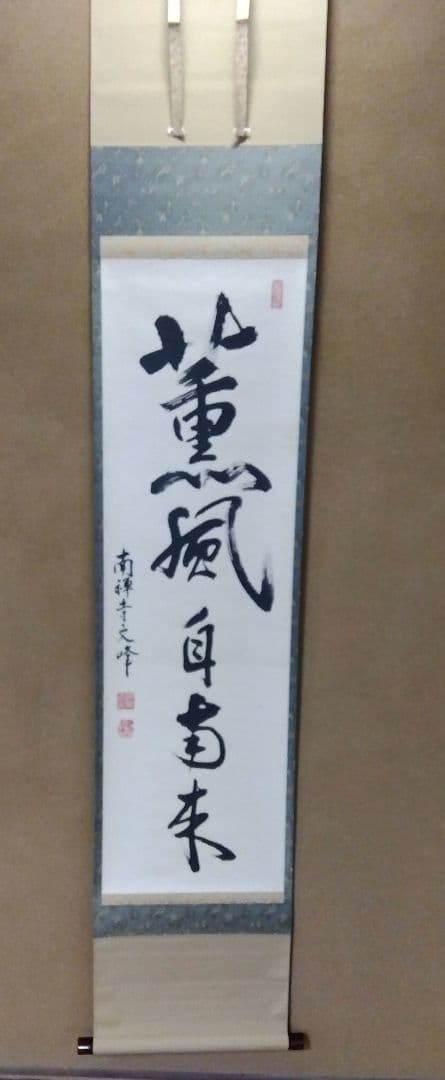 薫風自南来
南禅寺文峰